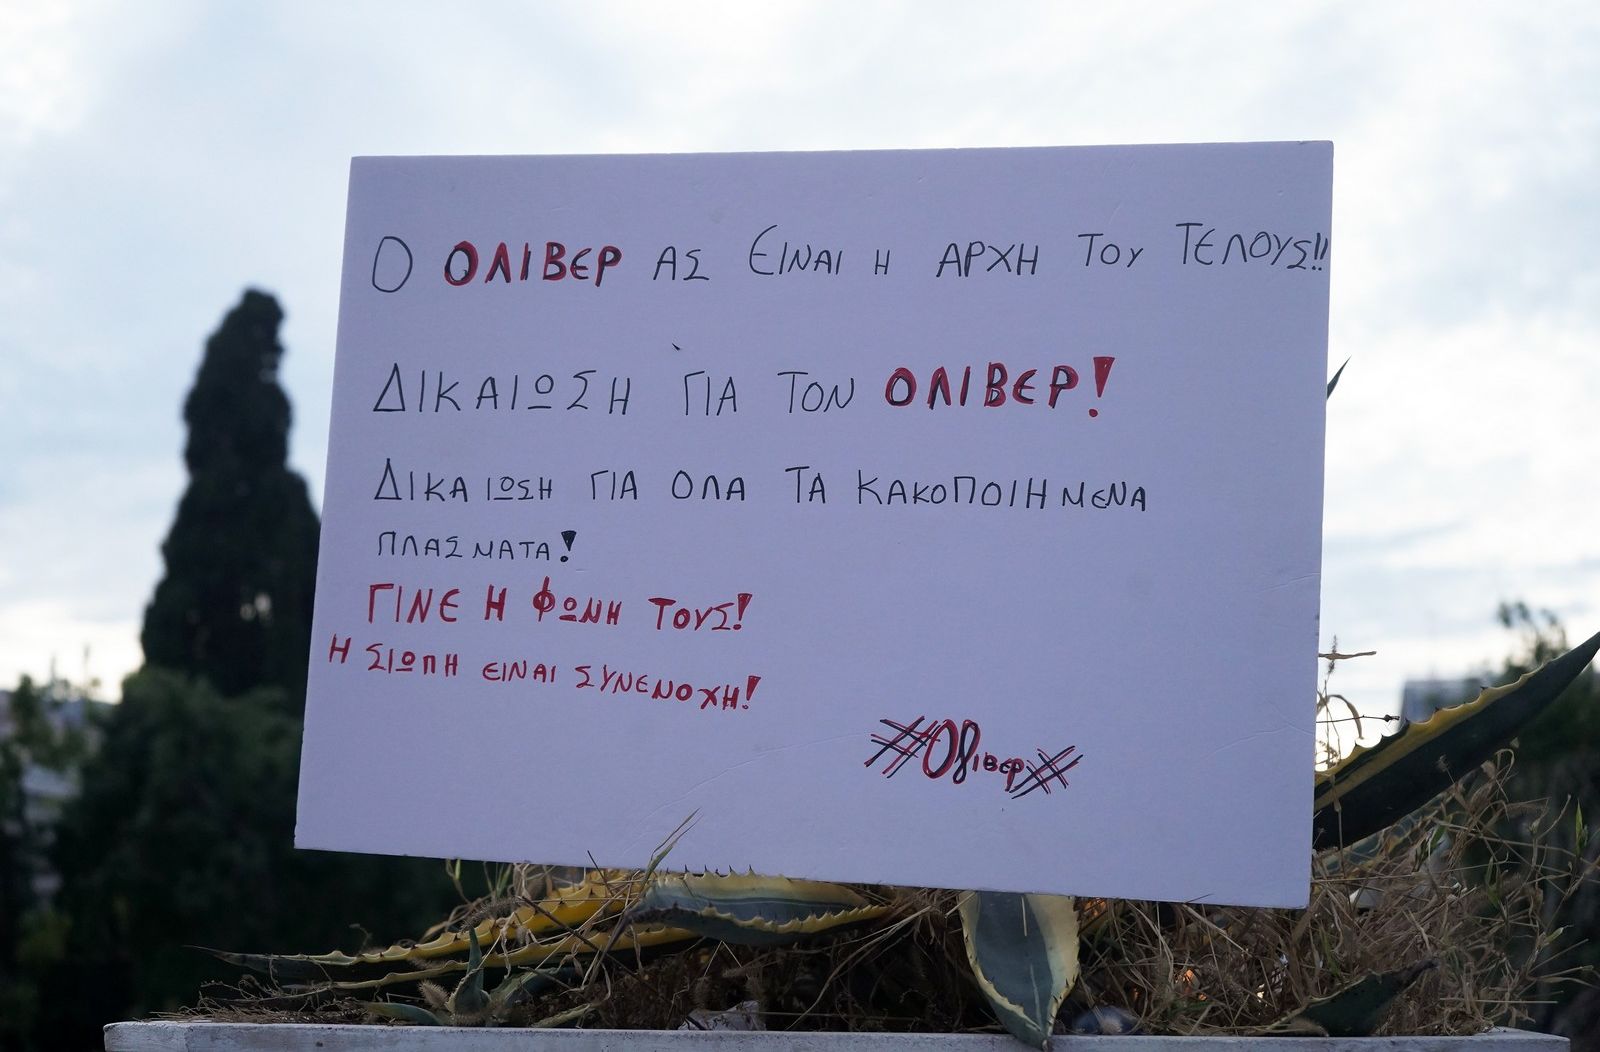 Ο ΟΛΙΒΕΡ ΑΣ ΕΙΝΑΙ Η ΑΡΧΗ ΤΟΥ ΤΕΛΟΥΣ!!
ΔΙΚΑΙΩΣΗ ΓΙΑ ΤΟΝ ΟΛΙΒΕΡ!
ΔΙΚΑΙΩΣΗ ΓΙΑ ΟΛΑ ΤΑ ΚΑΚΟΠΟΙΗΜΕΝΑ
ΠΛΑΣΜΑΤΑ!
ΓΙΝΕ Η ΦΩΝΗ ΤΟΥΣ!
Η ΣΙΩΠΗ ΕΙΝΑΙ ΣΥΝΕΝΟΧΗ!
#Ολιβερ#